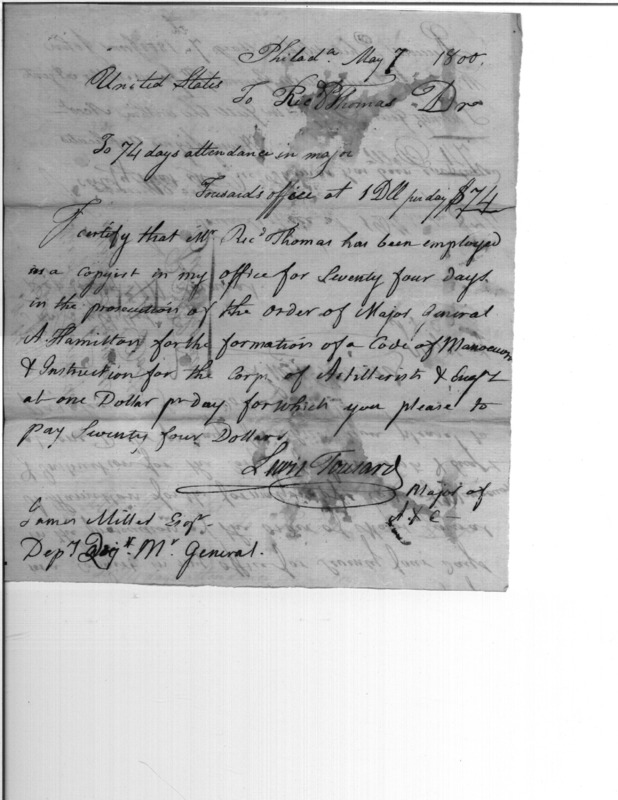 Philada. May 7 1800.
United States
To Ricd Thomas Dr
To 74 days attendance in major
Tousards office at 1 Dll per day $74
I certify that Mr Ricd Thomas has been employed
as a copyist in my office for Seventy four days
in the prosecution of the order of Major General
A Hamilton for the formation of a Code of Manoeuvre
& Instruction for the Corps of Artillerists & Engrs
at one Dollar pr day for which you please to
pay Seventy four Dollars
Lewis Tousard
Major of
A & E
James Miller Esqr.
Depy Qr Mr General.